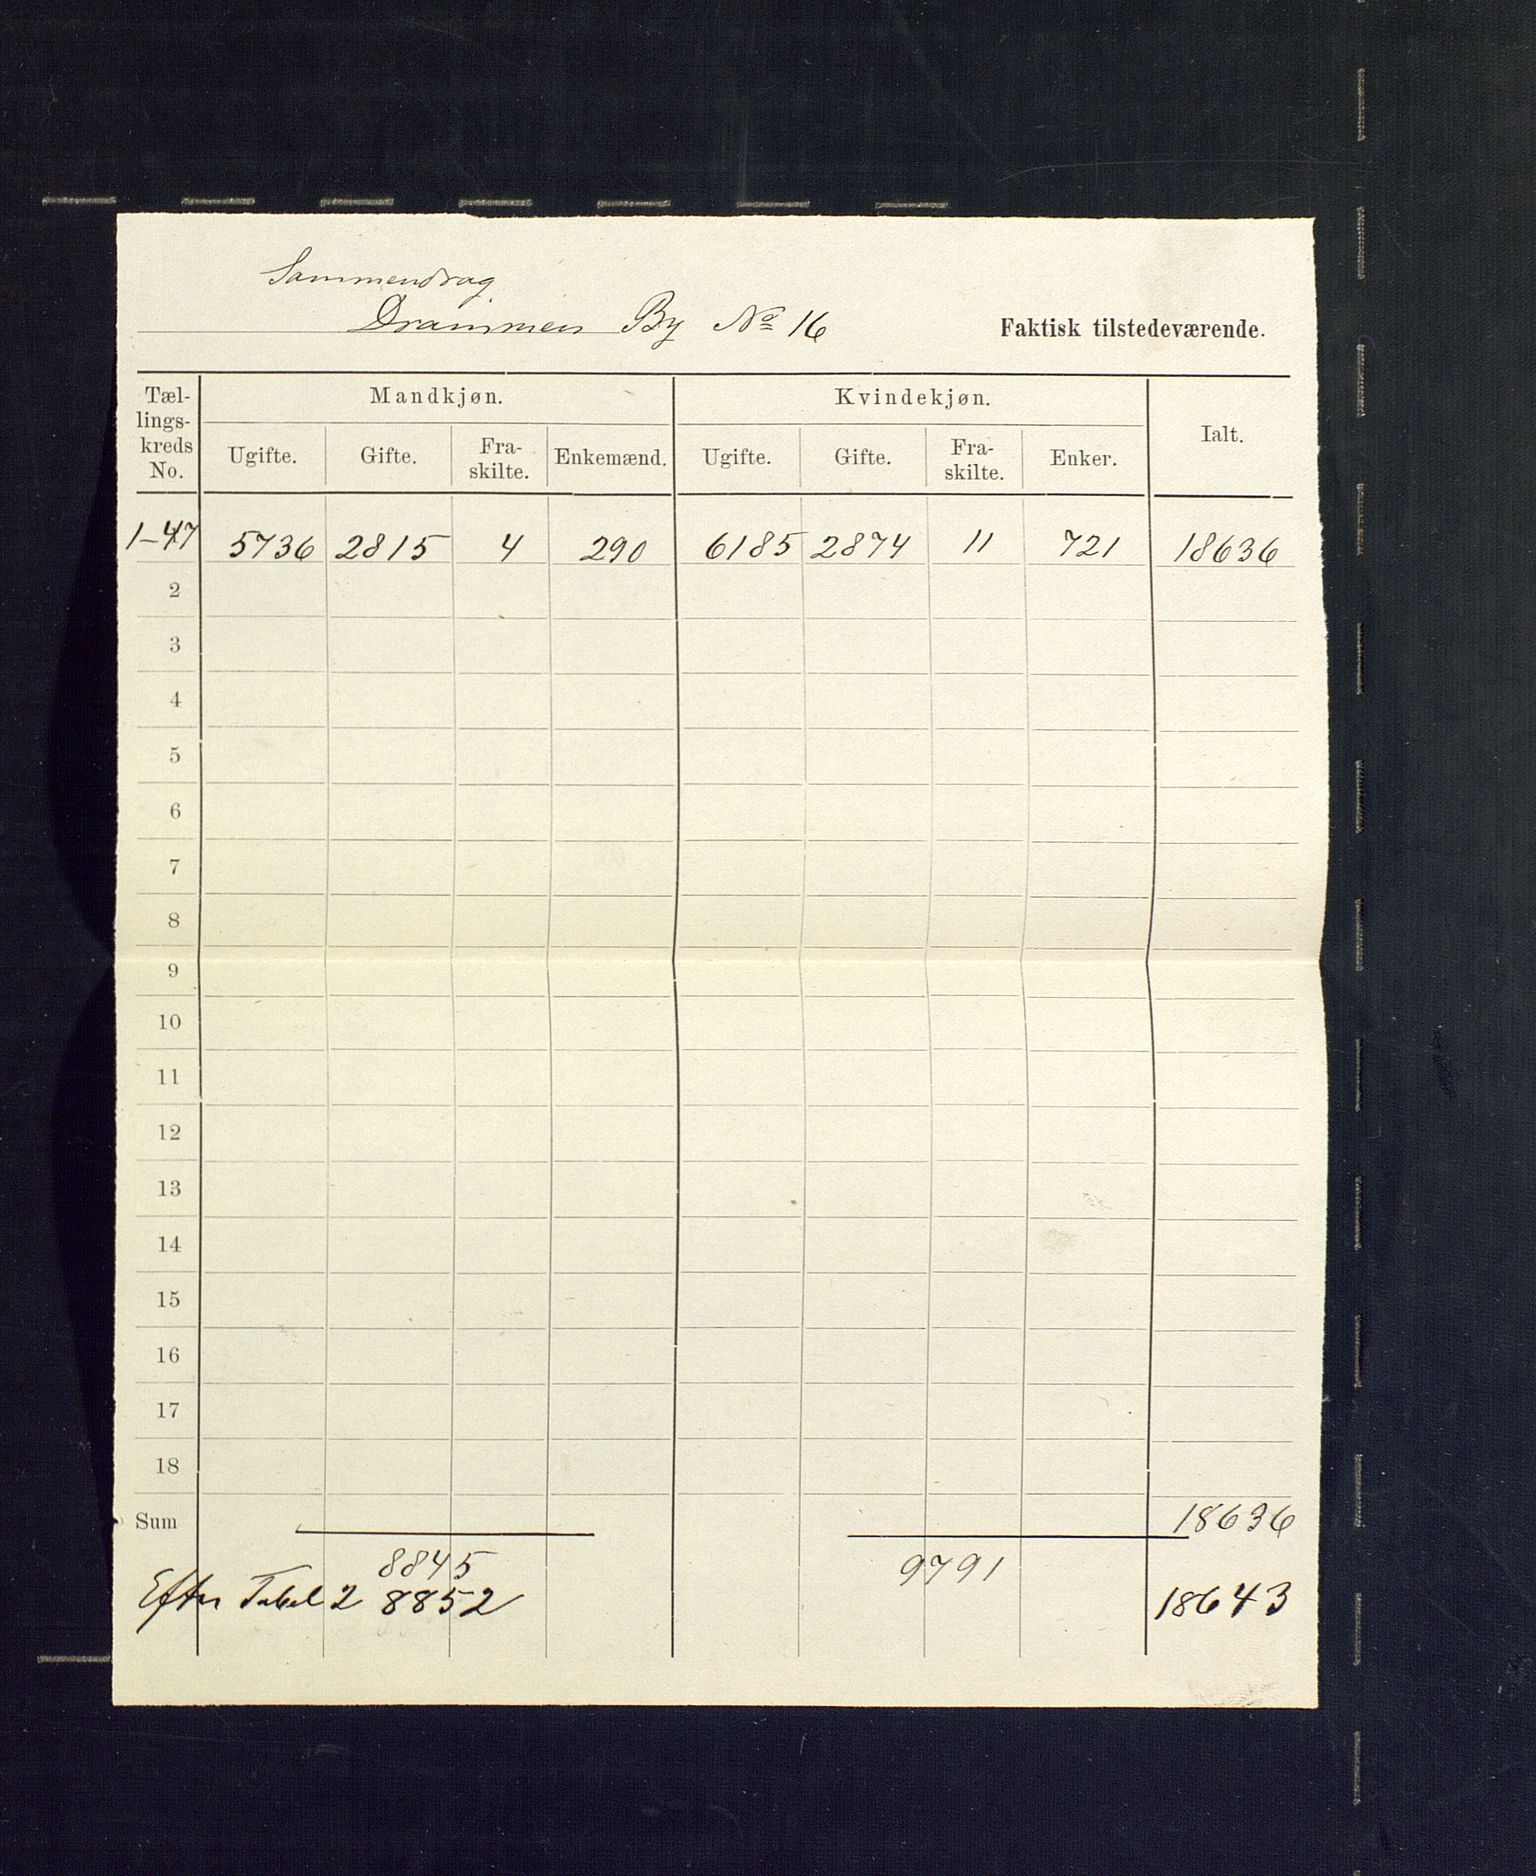 Sammendrag
Drammen By No 16
Faktisk tilstedeværende.
Tæl-
lings-
kreds
No.
Mandkjøn.
Kvindekjøn.
Ialt.
Ugifte. Gifte. Fra-
skilte. Enkemænd. Ugifte. Gifte. Fra-
skilte. Enker.
1-47 5736 2815 4 290 6185 2874 11 721 18636
2
3
4
5
6
7
8
9
10
11
12
13
14
15
16
17
18
Sum 18636
8845 9791
Efter Tabel 2 8852 18643